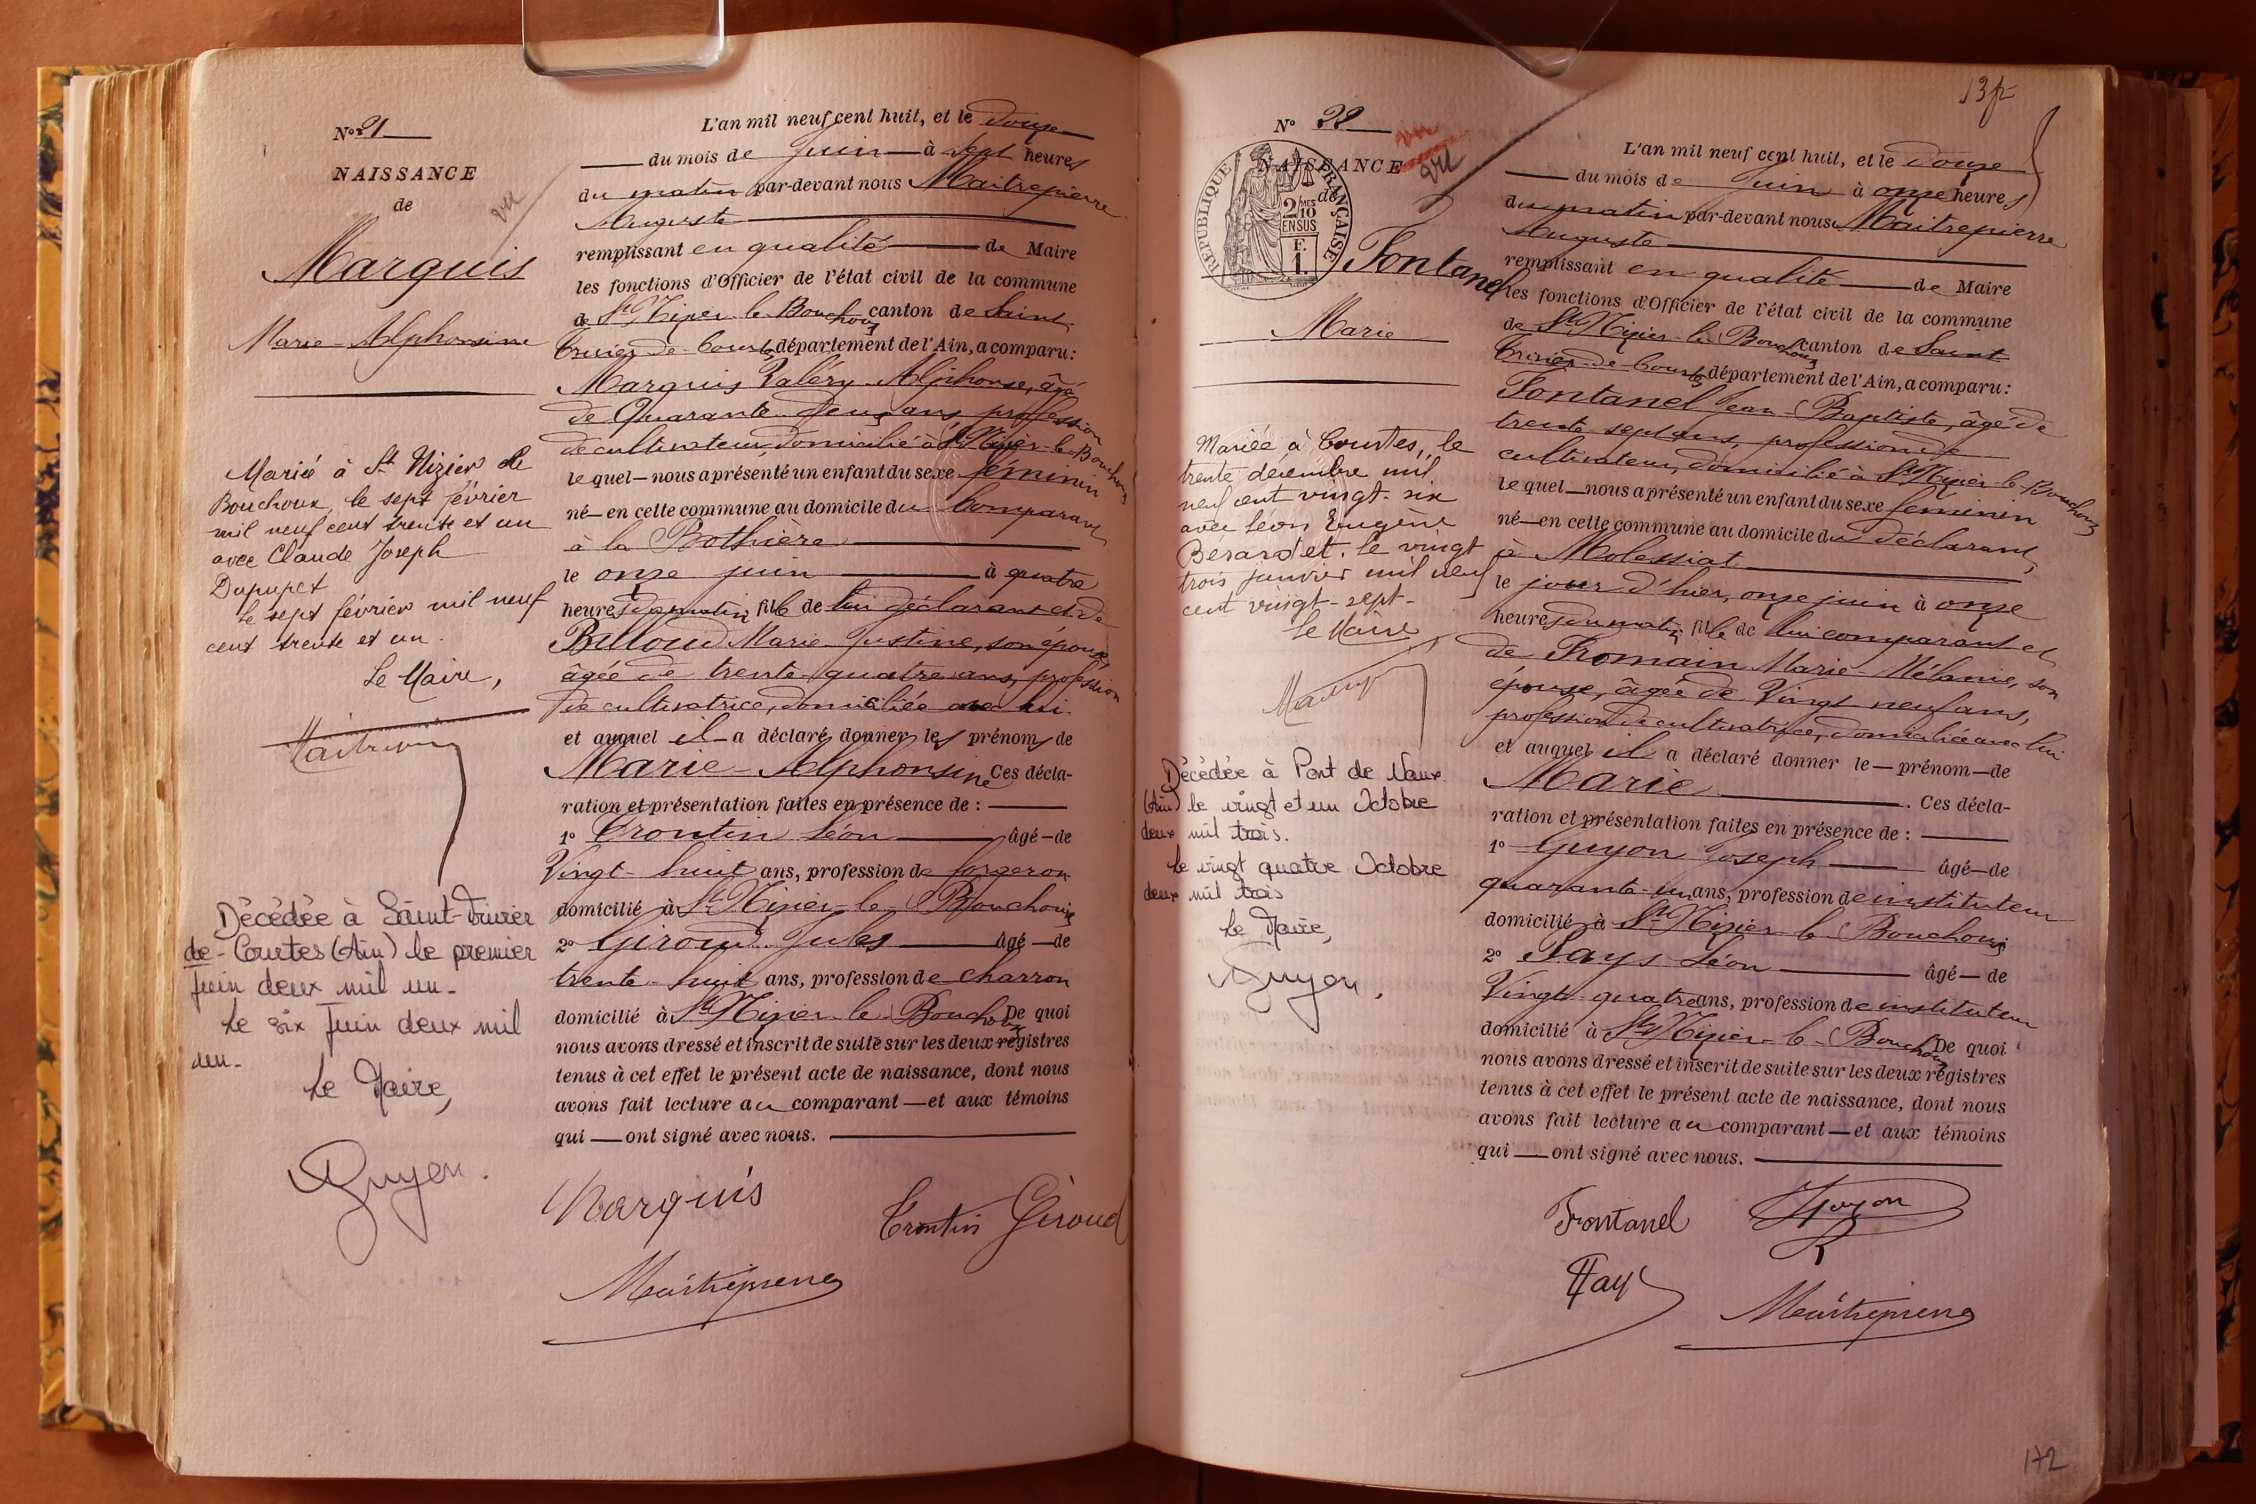 N° 21
NAISSANCE
de
vu
Marquis
Marie-Alphonsine
Marié à St Nizier le
Bouchoux, le sept février
mil neuf cent trente et un
avec Claude Joseph
Dupupet
le sept février mil neuf
cent trente et un.
Le Maire,
Décédée à Saint-Trivier
de-Courtes (Ain) le premier
Juin deux mil un-
Le six Juin deux mil
un-
Le Maire,
Guyon.
L'an mil neuf cent huit, et le Douze
du mois de Juin à sept heures
du matin par-devant nous Maitrepierre
Auguste
remplissant en qualité de Maire
les fonctions d'Officier de l'état civil de la commune
de St Nizier-le-Bouchoux canton de Saint-
Trivier-de-Courtes département de l'Ain, a comparu:
Marquis Valéry-Alphonse, âgé
de Quarante-deux ans, profession
de cultivateur, domicilié à St Nizier-le-Bouchoux
lequel—nous a présenté un enfant du sexe féminin
né—en cette commune au domicile du Comparant
à la Bothière
le onze juin à quatre
heures du matin, fille de lui déclarant et de
Billoud Marie-Justine, son épouse
âgée de trente-quatre ans, profession
de cultivatrice, domiciliée avec lui.
et auquel il a déclaré donner les prénoms de
Marie-Alphonsine Ces décla-
ration et présentation faites en présence de :
1° Trontin Léon âgé—de
Vingt-huit ans, profession de forgeron
domicilié à St Nizier-le-Bouchoux
2° Giroud Jules âgé—de
trente-huit ans, profession de charron
domicilié à St Nizier-le-Bouchoux De quoi
nous avons dressé et inscrit de suite sur les deux registres
tenus à cet effet le présent acte de naissance, dont nous
avons fait lecture au comparant—et aux témoins
qui—ont signé avec nous.
Marquis
Trontin Giroud
Maitrepierre
13f
N° 22
vu
NAISSANCE vu
de
RÉPUBLIQUE FRANÇAISE
2/10 MES
EN SUS
F.
1.
Fontanel
Marie
Mariée à Courtes, le
trente décembre mil
neuf cent vingt-six
avec Léon Eugène
Bérardet. le vingt
trois janvier mil neuf
cent vingt-sept-
Le Maire
Décédée à Pont de Vaux
(Ain) le vingt et un Octobre
deux mil trois.
Le vingt quatre Octobre
deux mil trois
Le Maire,
Guyon.
L'an mil neuf cent huit, et le Douze
du mois de Juin à onze heures
du matin par-devant nous Maitrepierre
Auguste
remplissant en qualité de Maire
les fonctions d'Officier de l'état civil de la commune
de St Nizier-le-Bouchoux canton de Saint
Trivier-de-Courtes département de l'Ain, a comparu:
Fontanel Jean-Baptiste, âgé de
trente sept ans, profession de
cultivateur, domicilié à St Nizier-le-Bouchoux
lequel—nous a présenté un enfant du sexe féminin
né—en cette commune au domicile du déclarant,
à Molessiat
le jour d'hier, onze juin à onze
heures du matin, fille de lui comparant et
de Romain Marie-Mélanie, son
épouse, âgée de Vingt neuf ans,
profession de cultivatrice, domiciliée avec lui
et auquel il a déclaré donner le—prénom—de
Marie . Ces décla-
ration et présentation faites en présence de :
1° Guyon Joseph âgé—de
quarante-un ans, profession de instituteur
domicilié à St Nizier-le-Bouchoux
2° Pays Léon âgé—de
Vingt-quatre ans, profession de instituteur
domicilié à St Nizier-le-Bouchoux De quoi
nous avons dressé et inscrit de suite sur les deux registres
tenus à cet effet le présent acte de naissance, dont nous
avons fait lecture au comparant—et aux témoins
qui—ont signé avec nous.
Fontanel Guyon
Pays
Maitrepierre
172